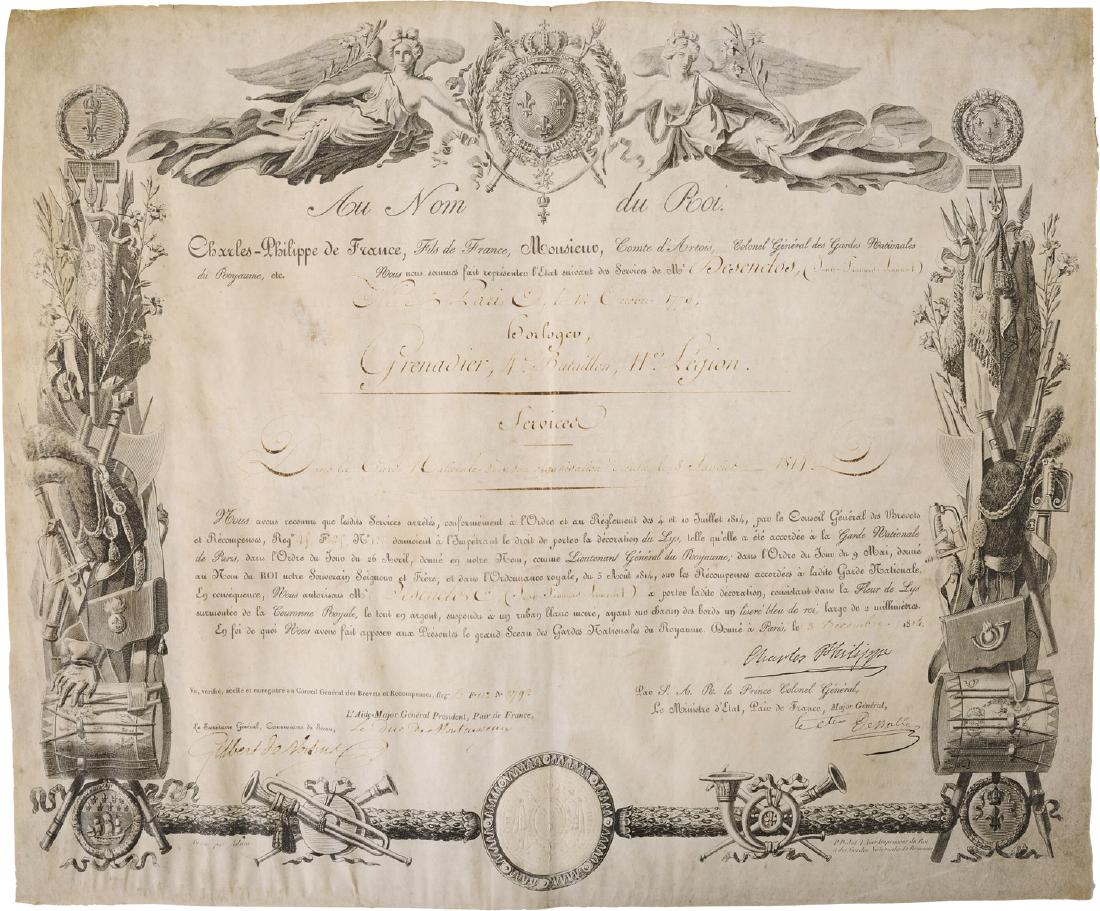 Au Nom du Roi.
Charles-Philippe de France, Fils de France, Monsieur, Comte d'Artois, Colonel Général des Gardes Nationales
du Royaume, etc. Nous nous sommes fait représenter l'Etat suivant des Services de Mr Desenclos, (Jean François
Né à le 12 Octobre 1779,
Horloger,
Grenadier, 4e Bataillon, 11e Légion.
Services
Dans la Garde Nationale depuis son organisation le 8 Janvier 1814.
Nous avons reconnu que lesdits Services arrêtés, conformément à l'Ordre et au Règlement des 4 et 10 Juillet 1814, par le Conseil Général des Brevets
et Récompenses, Regre Fo No donnoient à l'Impétrant le droit de porter la décoration du Lys, telle qu'elle a été accordée à la Garde Nationale
de Paris, dans l'Ordre du Jour du 26 Avril, donné en notre Nom, comme Lieutenant Général du Royaume; dans l'Ordre du Jour du 9 Mai, donné
au Nom du ROI notre Souverain Seigneur et Frère; et dans l'Ordonnance royale, du 5 Août 1814, sur les Récompenses accordées à ladite Garde Nationale.
En conséquence, Nous autorisons Mr Desenclos (Jean François à porter ladite décoration, consistant dans la Fleur de Lys
surmontée de la Couronne Royale, le tout en argent, suspendu à un ruban blanc moiré, ayant sur chacun des bords un liseré bleu de roi, large de 2 millimètres.
En foi de quoi Nous avons fait apposer aux Présentes le grand Sceau des Gardes Nationales du Royaume. Donné à Paris, le 3 Décembre 1814.
Charles Philippe
Vu, vérifié, scellé et enregistré au Conseil Général des Brevets et Récompenses, Regre Fo 122 No 2792
Par S. A. R. le Prince Colonel Général,
L'Aide-Major Général Président, Pair de France,
Le Ministre d'Etat, Pair de France, Major Général,
Le Secrétaire Général, Commissaire du Sceau,
Le Duc de Montesquiou
Le Cte Dessolle
Gilbert de Voisins
Gravé par Adam
P. Didot l'Aîné Imprimeur du Roi
et des Gardes Nationales du Royaume